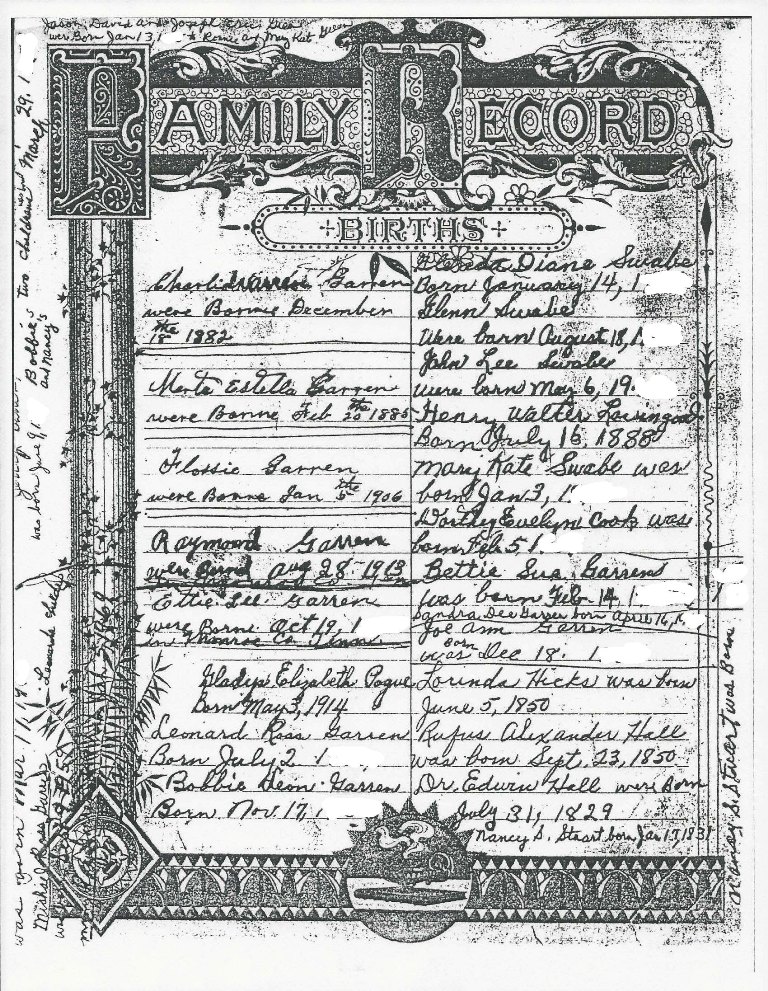 Jason David and Joseph Eric
were Born Jan 13, 1
FAMILY RECORD
BIRTHS
Charlie Garren
were Bornne December
18 the 1882
Merta Estella Garren
were Bornne Feb 20 the 1885
Flossie Garren
were Bornne Jan 5 the 1906
Raymond Garren
were Bornd Aug 28 1913
Ettie Lee Garren
were Borne Oct 19, 1
in Monroe Co. Tenn
Gladys Elizabeth Pogue
Born May 3, 1914
Leonard Ross Garren
Born July 2 1
Bobbie Deon Garren
Born Nov 17, 1
Diane Swabe
Born January 14, 1
Glenn Swabe
Were born August 18, 1
John Lee Swabe
were born May 6, 19
Henry Walter Lovingood
Born July 16, 1888
Mary Kate Swabe was
born Jan 3, 1
Evelyn Cook was
born Feb 5 1
Bettie Sue Garren
was born Feb 14, 1
Sandra Dee born April 16, 1
Joe Ann Garren
Born
was Dec 18. 1
Lorinda Hicks was born
June 5, 1850
Rufus Alexander Hall
was born Sept. 23, 1850
Dr. Edwin Hall were Born
July 31, 1829
Nancy S. Stuart born Jan 17, 1831
Nancy S. Stuart was Born
Bobbie's two children March 29, 1
and Nancy's
was born June 9, 1
was born Mar 1, 19
Michael